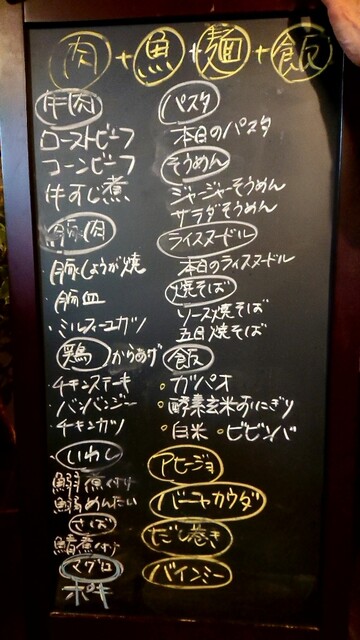 肉+魚+麺+飯
牛肉
ローストビーフ
コーンビーフ
牛すじ煮
豚肉
・豚しょうが焼
・豚皿
・ミルフィーユカツ
鶏 からあげ
・チキンステーキ
・バンバンジー
・チキンカツ
いわし
鰯煮付け
鰯めんたい
さば
鯖煮付け
マグロ
ポキ
パスタ
本日のパスタ
そうめん
ジャージャーそうめん
サラダそうめん
ライスヌードル
本日のライスヌードル
焼そば
ソース焼そば
五目焼そば
飯
・ガパオ
・酵素玄米おにぎり
・白米 ・ビビンバ
アヒージョ
バーニャカウダ
だし巻き
バインミー